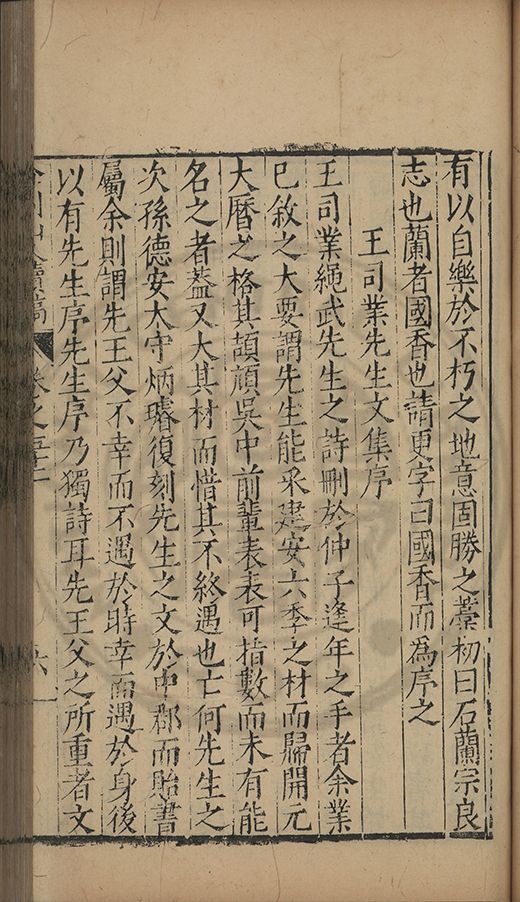 有以自樂於不朽之地意固勝之藁初曰石蘭宗良
志也蘭者國香也請更字曰國香而爲序之
王司業先生文集序
王司業繩武先生之詩刪於仲子逢年之手者余業
已敘之大要謂先生能采建安六季之材而歸開元
大曆之格其頡頏吳中前輩表表可指數而未有能
名之者蓋又大其材而惜其不終遇也亡何先生之
次孫德安太守炳璿復刻先生之文於中郡而貽書
屬余則謂先王父不幸而不遇於時幸而遇於身後
以有先生序先生序乃獨詩耳先王父之所重者文
續稿 卷之五十二
六